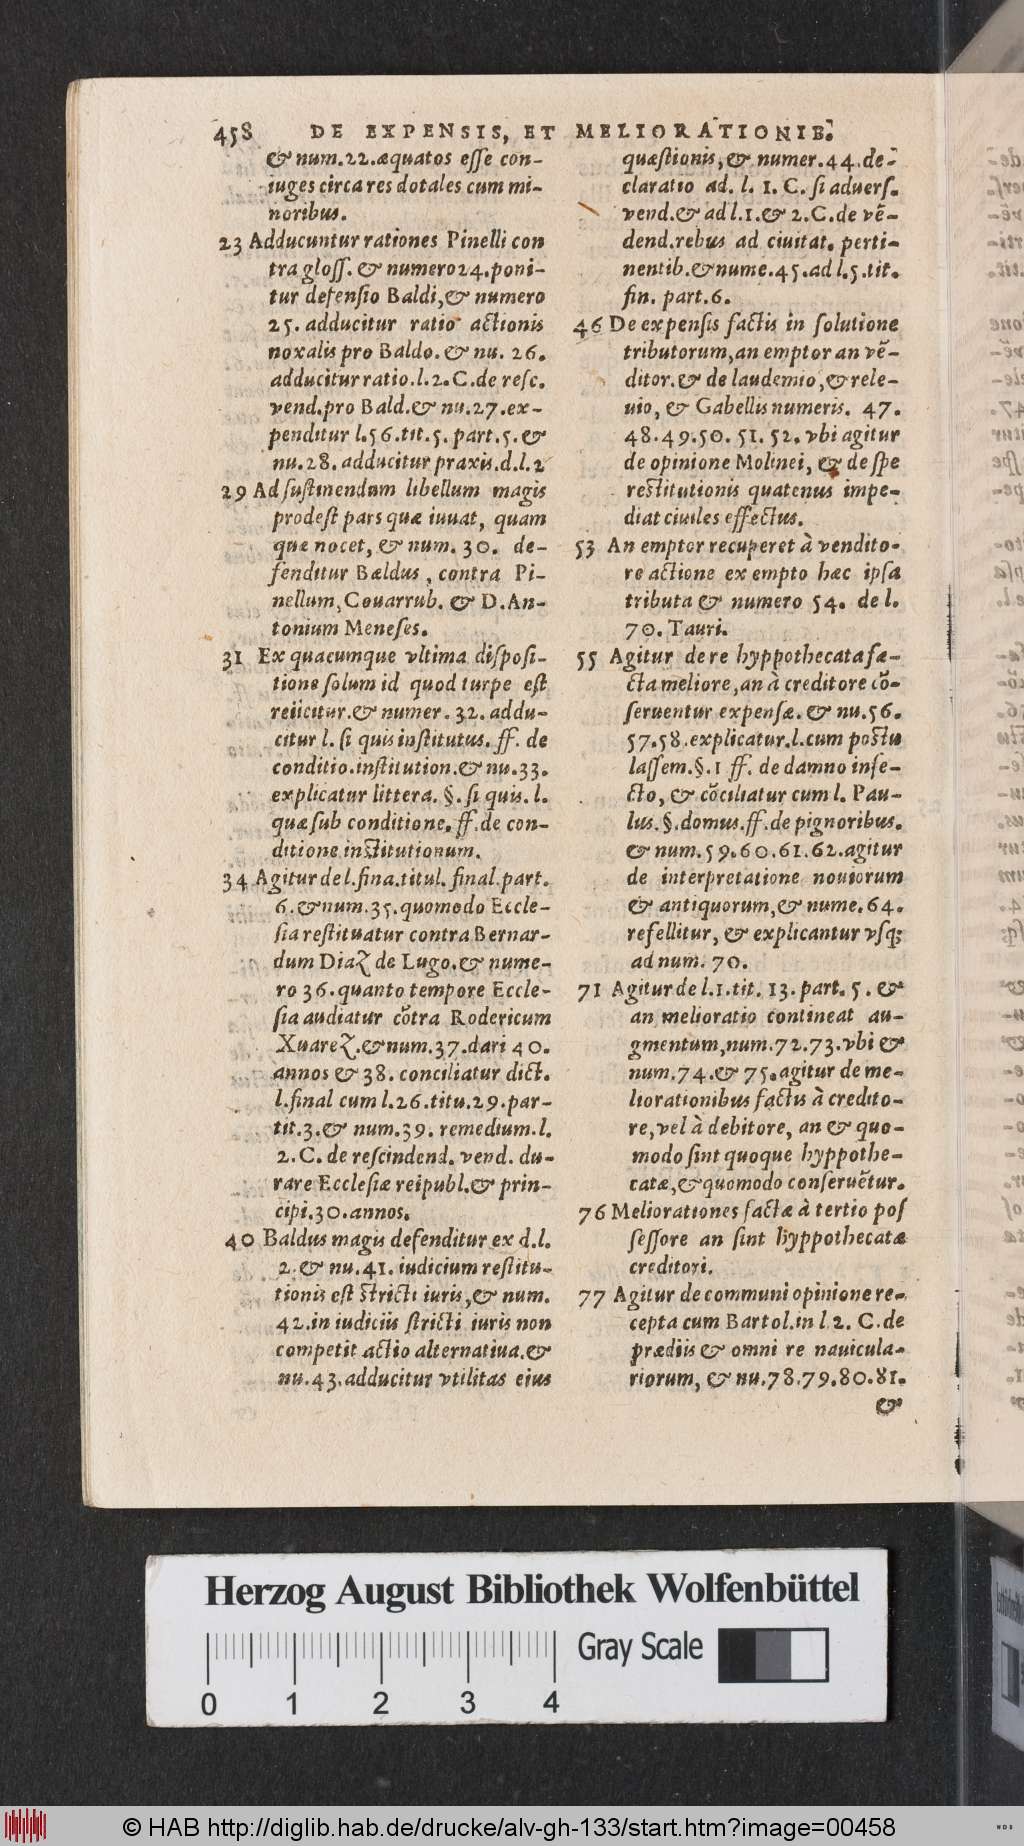 458 DE EXPENSIS, ET MELIORATIONIB.
& num.22.æquatos eſſe con-
iuges circa res dotales cum mi-
noribus.
23 Adducuntur rationes Pinelli con
tra gloſſ. & numero 24.poni-
tur defenſio Baldi,& numero
25. adducitur ratio actionis
noxalis pro Baldo. & nu. 26.
adducitur ratio.l.2.C.de reſc.
vend.pro Bald.& nu.27.ex-
penditur l.56.tit.5. part.5.&
nu.28. adducitur praxis.d.l.2
29 Ad ſuſtinendum libellum magis
prodeſt pars quæ iuuat, quam
quæ nocet, & num. 30. de-
fenditur Bældus, contra Pi-
nellum, Couarrub. & D.An-
tonium Meneſes.
31 Ex quacumque vltima diſpoſi-
tione ſolum id quod turpe eſt
reiicitur.& numer. 32. addu-
citur l. ſi quis inſtitutus. ff. de
conditio.inſtitution.& nu.33.
explicatur littera. §. ſi quis. l.
quæ ſub conditione. ff.de con-
ditione inſtitutionum.
34 Agitur de l.fina.titul. final.part.
6.& num.35.quomodo Eccle-
ſia reſtituatur contra Bernar-
dum Diaz de Lugo.& nume-
ro 36.quanto tempore Eccle-
ſia audiatur cõtra Rodericum
Xuarez.& num.37.dari 40.
annos & 38. conciliatur dict.
l.final cum l.26.titu.29.par-
tit.3.& num.39. remedium.l.
2.C. de reſcindend. vend. du-
rare Eccleſiæ reipubl.& prin-
cipi.30.annos.
40 Baldus magis defenditur ex d.l.
2.& nu.41. iudicium reſtitu-
tionis eſt ſtricti iuris,& num.
42.in iudiciis ſtricti iuris non
competit actio alternatiua.&
nu.43.adducitur vtilitas eius
quæſtionis,& numer.44.de-
claratio ad. l. 1. C. ſi aduerſ.
vend.& ad l.1.& 2.C.de vẽ-
dend.rebus ad ciuitat. perti-
nentib.& nume.45.ad l.5.tit.
fin. part.6.
46 De expenſis factis in ſolutione
tributorum,an emptor an vẽ-
ditor.& de laudemio,& rele-
uio, & Gabellis numeris. 47.
48.49.50. 51. 52. vbi agitur
de opinione Molinei, & de ſpe
reſtitutionis quatenus impe-
diat ciuiles effectus.
53 An emptor recuperet à vendito-
re actione ex empto hæc ipſa
tributa & numero 54. de l.
70. Tauri.
55 Agitur de re hyppothecata fa-
cta meliore,an à creditore cõ-
ſeruentur expenſæ. & nu.56.
57.58.explicatur.l.cum poſtu
laſſem.§.1 ff. de damno infe-
cto, & cõciliatur cum l. Pau-
lus.§.domus.ff.de pignoribus.
& num.59.60.61.62.agitur
de interpretatione nouiorum
& antiquorum,& nume.64.
refellitur, & explicantur vſq;
ad num. 70.
71 Agitur de l.1.tit. 13. part. 5. &
an melioratio contineat au-
gmentum,num.72.73.vbi &
num.74.& 75.agitur de me-
liorationibus factis à credito-
re,vel à debitore, an & quo-
modo ſint quoque hyppothe-
catæ,& quomodo conſeruẽtur.
76 Meliorationes factæ à tertio poſ
ſeſſore an ſint hyppothecatæ
creditori.
77 Agitur de communi opinione re-
cepta cum Bartol.in l 2. C.de
prædiis & omni re nauicula-
riorum, & nu.78.79.80.81.
&
Herzog August Bibliothek Wolfenbüttel
Gray Scale
0 1 2 3 4
© HAB http://diglib.hab.de/drucke/alv-gh-133/start.htm?image=00458